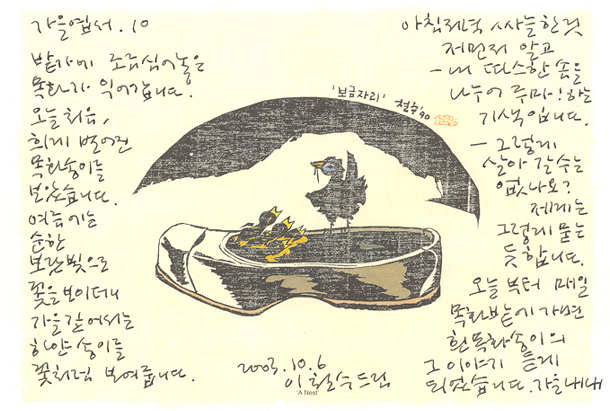 가을엽서. 10
밭가에 조금 심어놓은
목화가 익어갑니다.
오늘 처음,
희게 벌어진
목화송이를
보았습니다.
여름에는
순한
보랏빛으로
꽃을 보이더니
가을 깊어서는
하얀 송이를
꽃처럼 보여줍니다.
'보금자리' 철수 '90
아침저녁 쌀쌀한 것
저 먼저 알고
- 내 따스한 솜을
나누어 주마! 하는
기색입니다.
- 그렇게
살아갈 수는
없나요?
제게는
그렇게 묻는
듯 합니다.
오늘부터 매일
목화밭에 가면
흰 목화송이의
그 이야기 듣게
되었습니다. 가을내내
2003. 10. 6
이철수 드림
'A Nest'